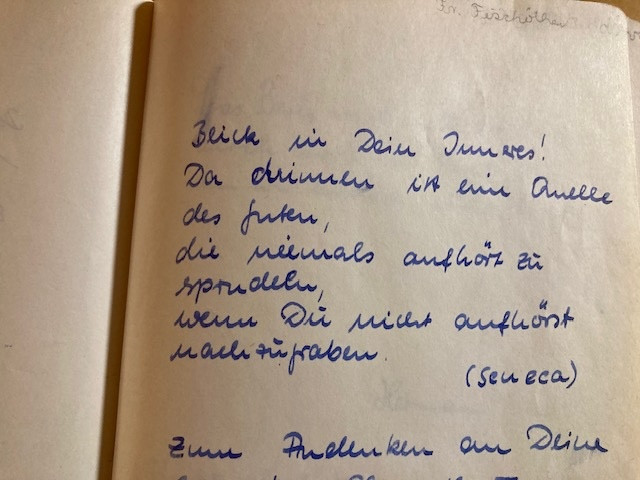 Fr. Fischöther
Blick in Dein Inneres!
Da drinnen ist ein Quelle
des guten,
die niemals aufhört zu
sprudeln,
wenn Du nicht aufhörst
nachzugraben.
(Seneca)
Zum Andenken an Deine